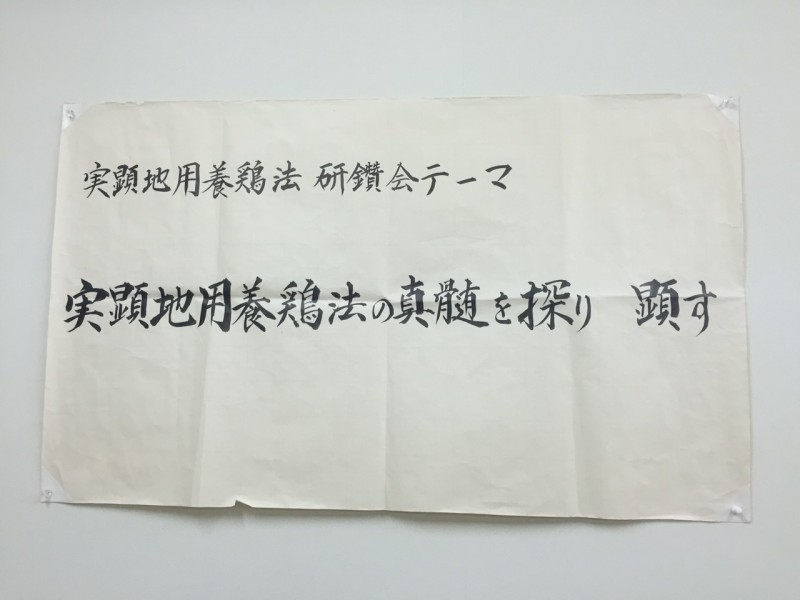 実顕地用養鶏法 研鑽会テーマ
実顕地用養鶏法の真髄を探り 顕す